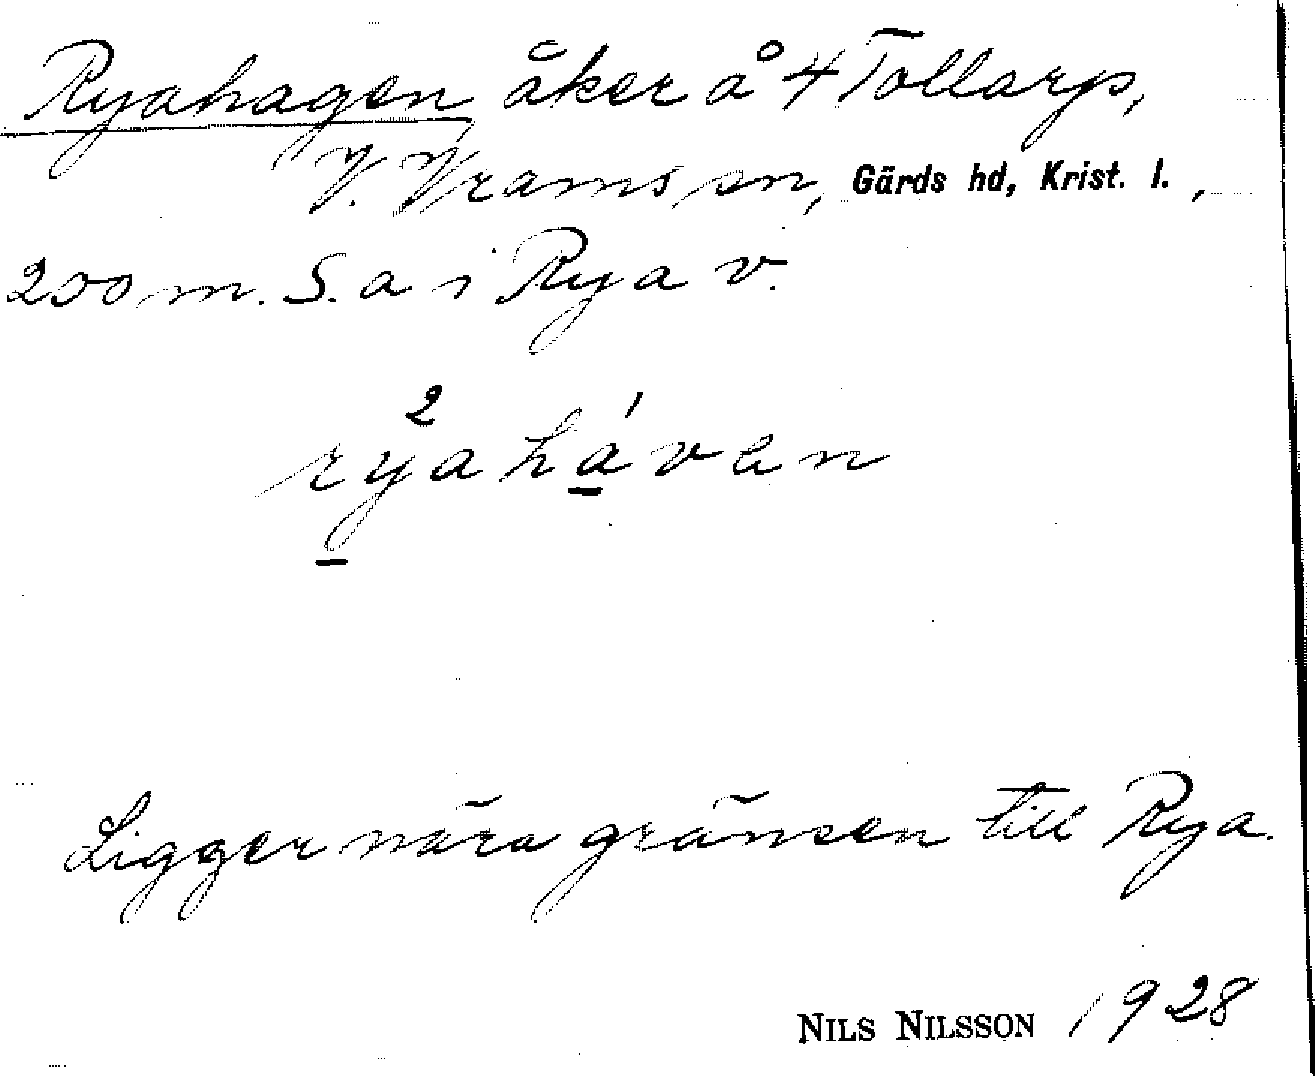 Ryahagen åker å 4 Tollarp,
V. Vrams sn, Gärds hd, Krist. l.,
200 m. S. a i Rya v.
2
ryahávan
Ligger nära gränsen till Rya.
NILS NILSSON 1928